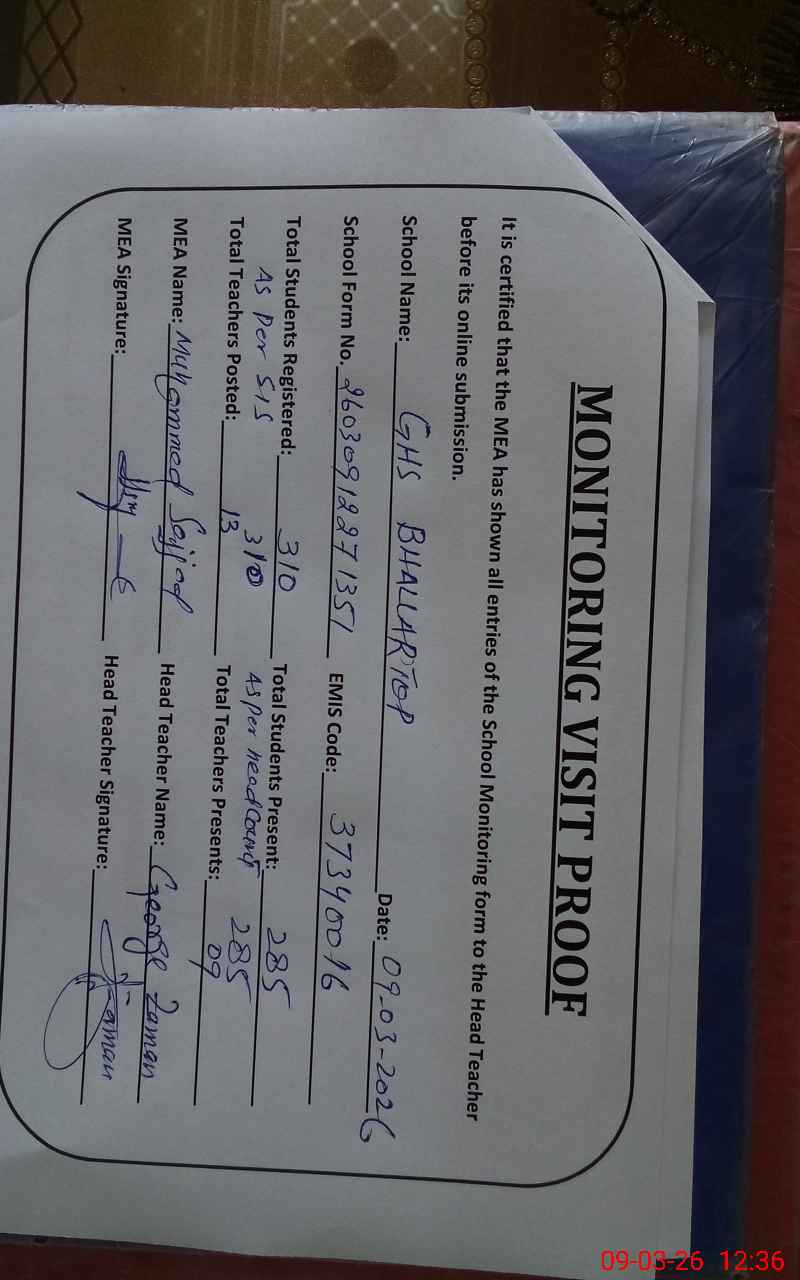 MONITORING VISIT PROOF
It is certified that the MEA has shown all entries of the School Monitoring form to the Head Teacher
before its online submission.
School Name: GHS BHALLAR TOP Date: 09-03-2026
School Form No. 26030912271351 EMIS Code: 37340016
Total Students Registered: 310 Total Students Present: 285
As Per SIS 310 As per head count 285
Total Teachers Posted: 13 Total Teachers Presents: 09
MEA Name: Muhammad Sajjad Head Teacher Name: George Zaman
MEA Signature: Head Teacher Signature: Zaman
09-03-26 12:36